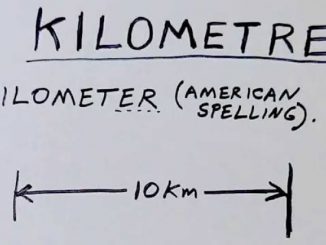 KILOMETRE
ILOMETER (AMERICAN
SPELLING).
10km